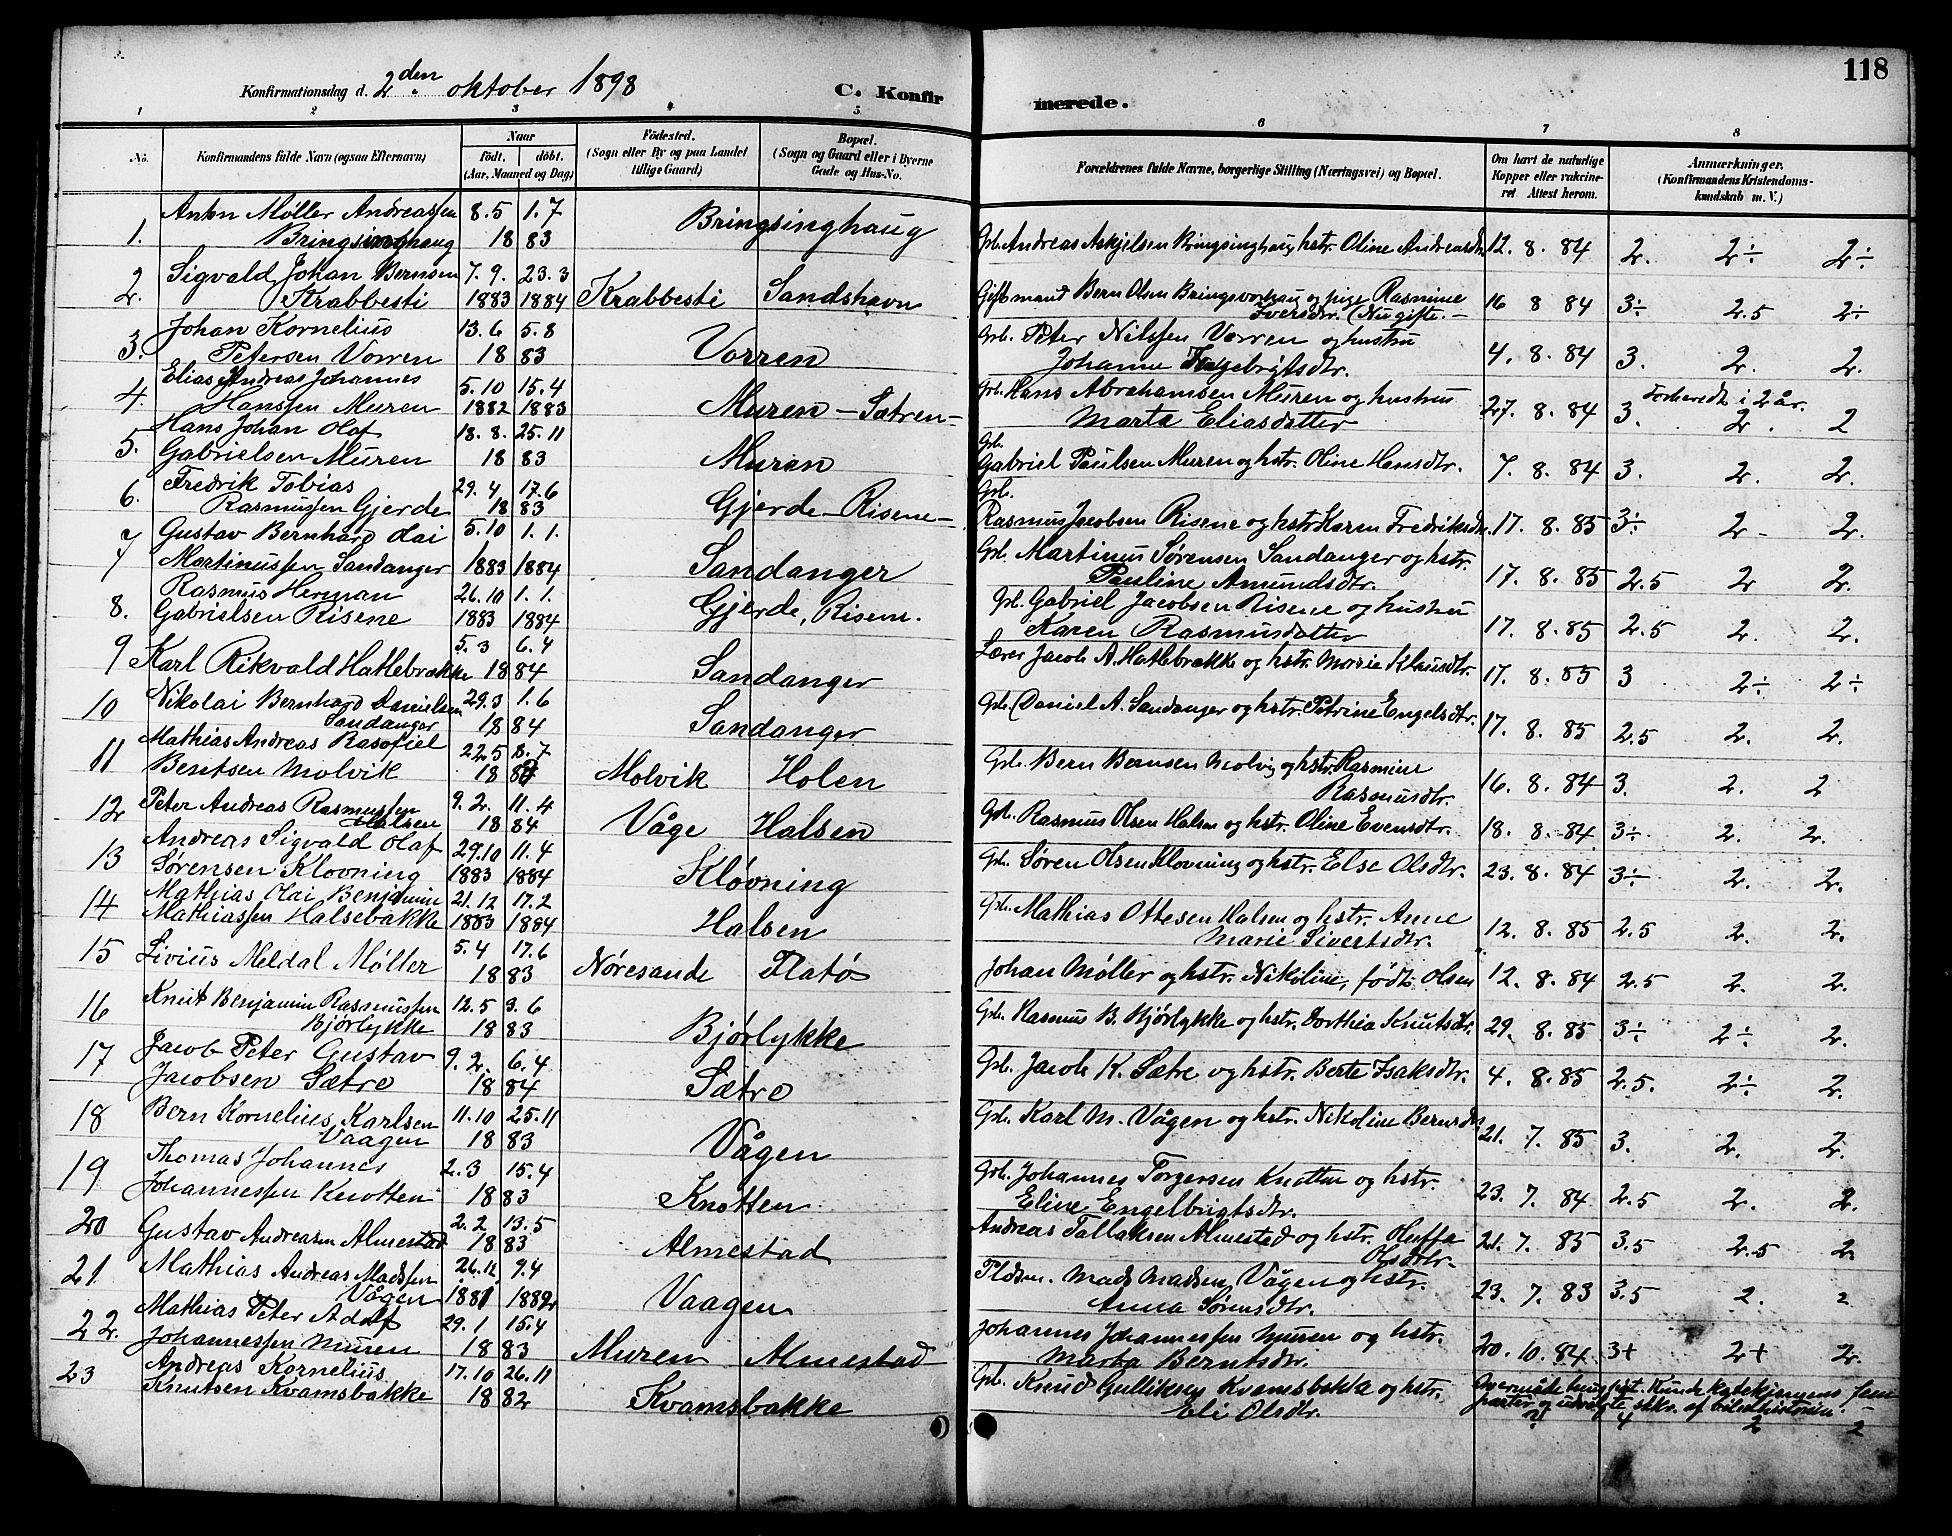 118
Konfirmationsdag d. 2den oktober 1898 C. Konfirmerede.
1 2 3 4 5 6 7 8
No. Konfirmandens fulde Navn (ogsaa Efternavn) Naar födt. döbt. (Aar, Maaned og Dag) Födested. (Sogn eller By og paa Landet tillige Gaard) Bopæl. (Sogn og Gaard eller i Byerne Gade og Hus-No. Forældrenes fulde Navne, borgerlige Stilling (Næringsvei) og Bopæl. Om havt de naturlige Kopper eller vaccineret Attest herom. Anmærkninger, (Konfirmandens Kristendomskundskab m. V.)
1. Anton Møller Andreassen 8.5 1.7
Bringsinghaug 18 83 Bringsinghaug Gbr. Andreas Askjelsen Bringsinghaug hstr. Oline Andreasdtr. 12. 8. 84 2. 2÷ 2÷
2. Sigvald Johan Bernsen 7.9. 23.3
Krabbesti 1883 1884 Krabbesti Sandshavn Gift mand Bern Olsen Bringsvorhaug og pige Rasmine 16 8 84 3÷ 2.5 2÷
Iversdtr. (Nu gifte.-
3. Johan Kornelius 13.6 5.8
Petersen Vorren 18 83 Vorren Gbr. Peter Nilssen Vorren og hustru
Johanne Ingebrigtsdtr. 4. 8. 84 3. 2. 2.
4. Elias Andreas Johannes 5.10 15.4
Hanssen Muren 1882 1883 Muren - Sætren - Gbr. Hans Abrahamsen Muren og hustru
Marta Eliasdatter 27. 8. 84 3. Forberedt i 2 år. 2. 2
5. Hans Johan Olaf 18.8. 25.11
Gabrielsen Muren 18 83 Muren Gbr. Gabriel Paulsen Muren og hstr. Oline Hansdtr. 7. 8. 84 3. 2. 2.
6. Fredrik Tobias 29.4 17.6
Rasmussen Gjerde 18 83 Gjerde - Risene - Gbr. Rasmus Jacobsen Risene og hstr. Karen Fredriksdtr. 17. 8. 85 3÷ 2- 2.
7 Gustav Bernhard Olai 5.10 1.1.
Martinussen Sandanger 1883 1884 Sandanger Gbr. Martinus Sørensen Sandanger og hstr.
Pauline Amundsdtr. 17. 8. 85 2.5 2 2.
8. Rasmus Herman 26.10 1.1.
Gabrielsen Risene 1883 1884 Gjerde, Risene. Gbr. Gabriel Jacobsen Risene og hustru
Karen Rasmusdatter 17. 8. 85 2.5 2. 2.
9 Karl Rikvald Hatlebrække 5.3 6.4
18 84 Sandanger Lærer Jacob A. Hatlebrække og hstr. Marie Knusdtr. 17. 8. 85 3 2÷ 2÷
10 Nikolai Bernhard Danielsen 29.3 1.6
Sandanger 18 84 Sandanger Gbr. Daniel A. Sandanger og hstr. Petrine Engelsdtr. 17. 8. 85 2.5 2. 2.
11 Mathias Andreas 22.5 8.7
Berntsen Molvik 18 83 Molvik Holen Gbr. Bern Bernsen Molvig og hstr. Rasmine
Rasmusdtr. 16. 8. 84 3. 2. 2
12 Peter Andreas Rasmussen 9.2. 11.4
Halsen 18 84 Våge Halsen Gbr. Rasmus Olsen Halsen og hstr. Oline Evensdtr. 18. 8. 84 3÷ 2. 2.
13 Andreas Sigvald Olaf 29.10 11.4
Sørensen Kløvning 1883 1884 Kløvning Gbr. Søren Olsen Kløvning og hstr. Else Olsdtr. 23. 8. 84 3÷ 2. 2.
14 Mathias Olai Benjamin 21.12 17.2
Mathiassen Halsebakke 1883 1884 Halsen Gbr. Mathias Ottesen Halsen og hstr. Anne
Marie Sivertsdtr. 12. 8. 85 2.5 2. 2.
15 Livius Meldal Møller 5.4 17.6
18 83 Nøresande Flatø Johan Møller og hstr. Nikoline, født Olsen 12. 8. 84 2.5 2. 2.
16 Knut Benjamin Rasmussen 12.5 3.6
Bjørlykke 18 83 Bjørlykke Gbr. Rasmus B. Bjørlykke og hstr. Dorthea Knutsdtr. 29. 8. 85 3÷ 2÷ 2.
17 Jacob Peter Gustav 9.2. 6.4
Jacobsen Sætre 18 84 Sætre Gbr. Jacob K. Sætre og hstr. Berte Isaksdtr. 4. 8. 85 2.5. 2÷ 2.
18 Bern Kornelius Karlsen 11.10 25.11
Vaagen 18 83 Vågen Gbr. Karl M. Vågen og hstr. Nikoline Bernsdtr. 21. 7. 85 3. 2. 2.
19 Thomas Johannes 2.3 15.4
Johannessen Knotten 18 83 Knotten Gbr. Johannes Torgersen Knotten og hstr.
Eline Engelbrigtsdtr. 23. 7. 84 2.5 2. 2.
20 Gustav Andreasen Almestad 2.2 13.5
18 83 Almestad Andreas Tallaksen Almestad og hstr. Oluffa
Olsdtr. 21. 7. 85 3.5 2.5 2.
21 Mathias Andreas Madssen 26.12 9.4
Vågen 1881 1882 Vaagen Mads Madsen Vågen og hstr.
Anna Sørensdtr. 23. 7. 83 3.5 2. 2
22. Mathias Peter Adolf 29.1 15.4
Johannessen Muren 18 83 Muren Almestad Johannes Johannessen Muren og hstr.
Marta Berntsdtr. 20. 10. 84 3+ 2+ 2.
23 Andreas Kornelius 17.10 26.11
Knutsen Kvamsbakke 18 82 Kvamsbakke Gbr. Knud Gulliksen Kvamsbakke og hstr.
Eli Olsdtr. Overmåde tungført. Kunde katekismens fem
parter og udvalgte stkr. af bibelhistorien. -
4 2 2